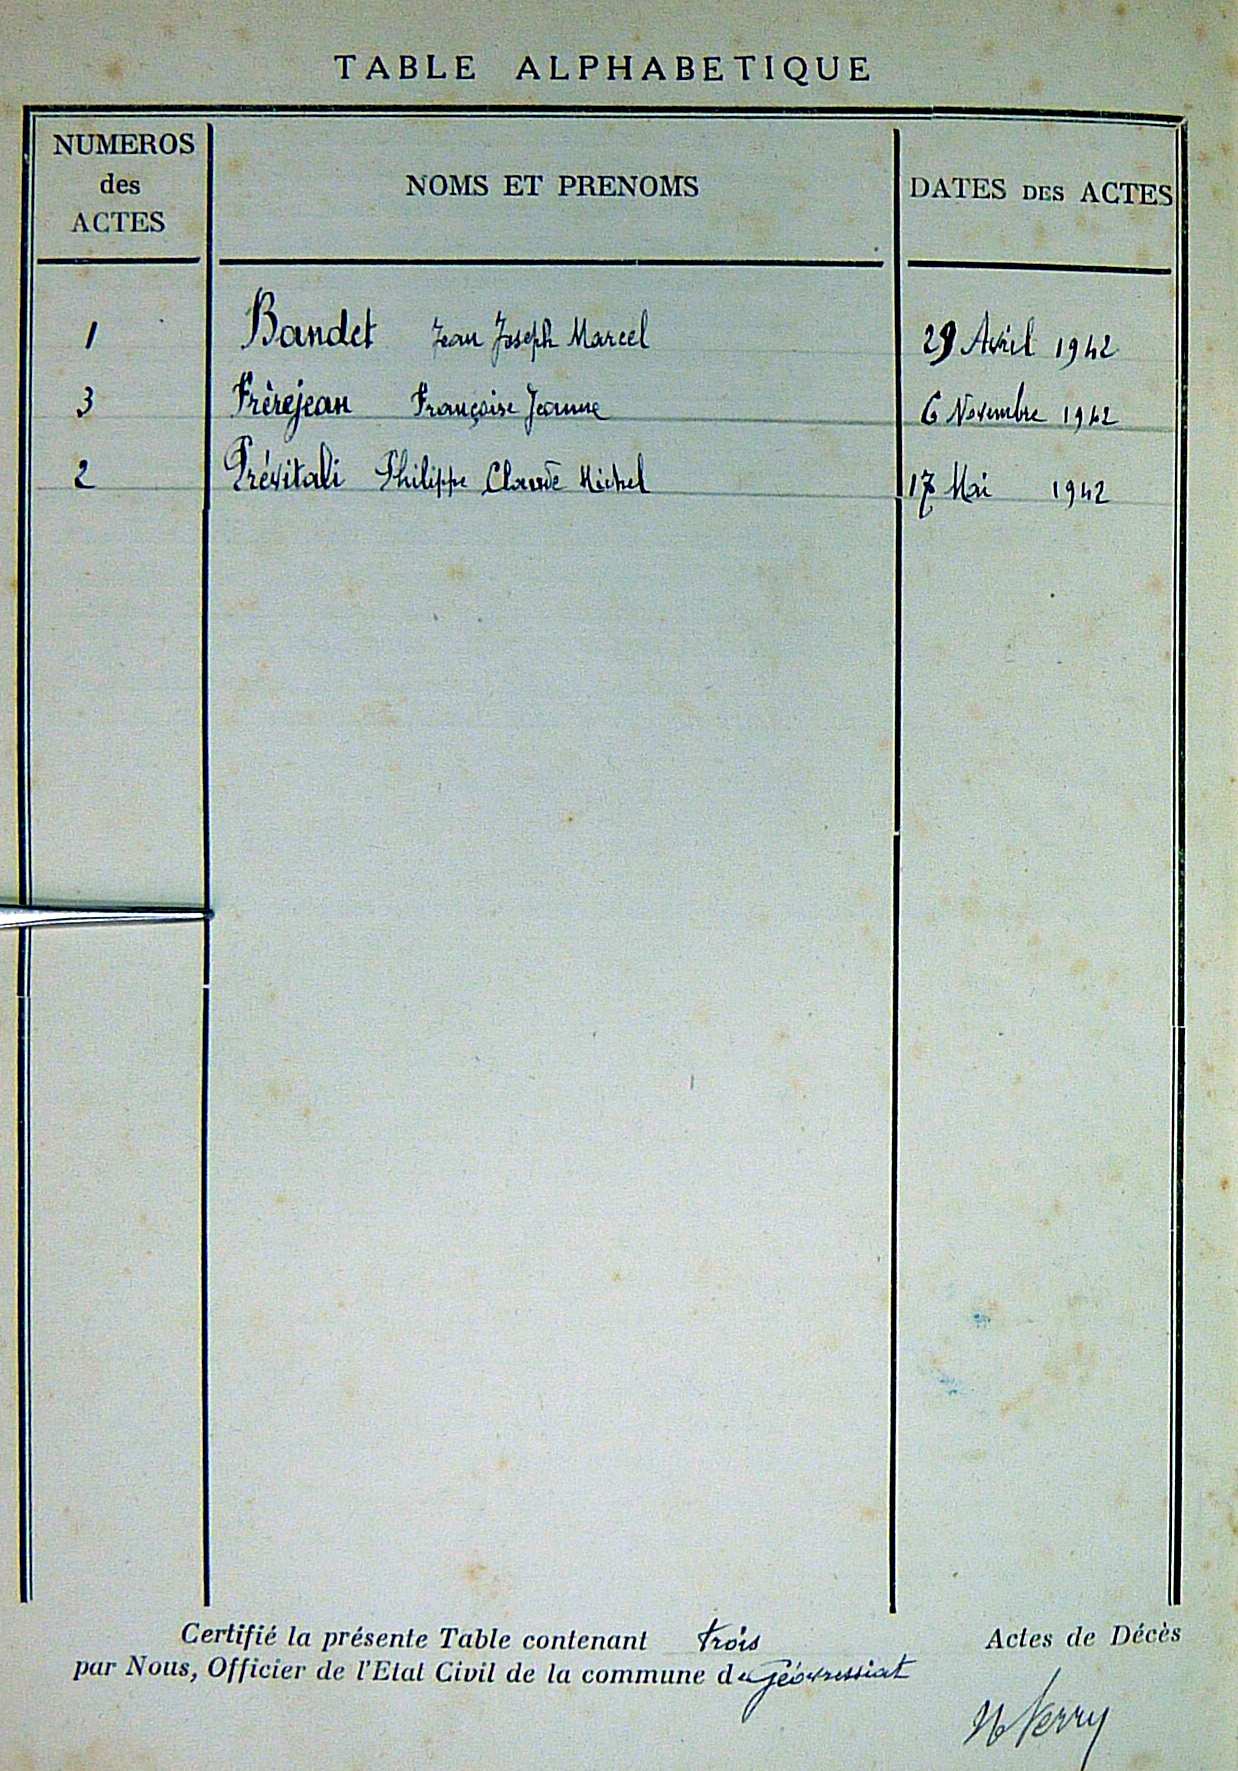 TABLE ALPHABETIQUE
NUMEROS des ACTES NOMS ET PRENOMS DATES DES ACTES
1 Bandet Jean Joseph Marcel 29 Avril 1942
3 Frèrejean Françoise Jeanne 6 Novembre 1942
2 Prévitali Philippe Claude Michel 17 Mai 1942
Certifié la présente Table contenant trois Actes de Décès
par Nous, Officier de l'Etat Civil de la commune de Géovressiat